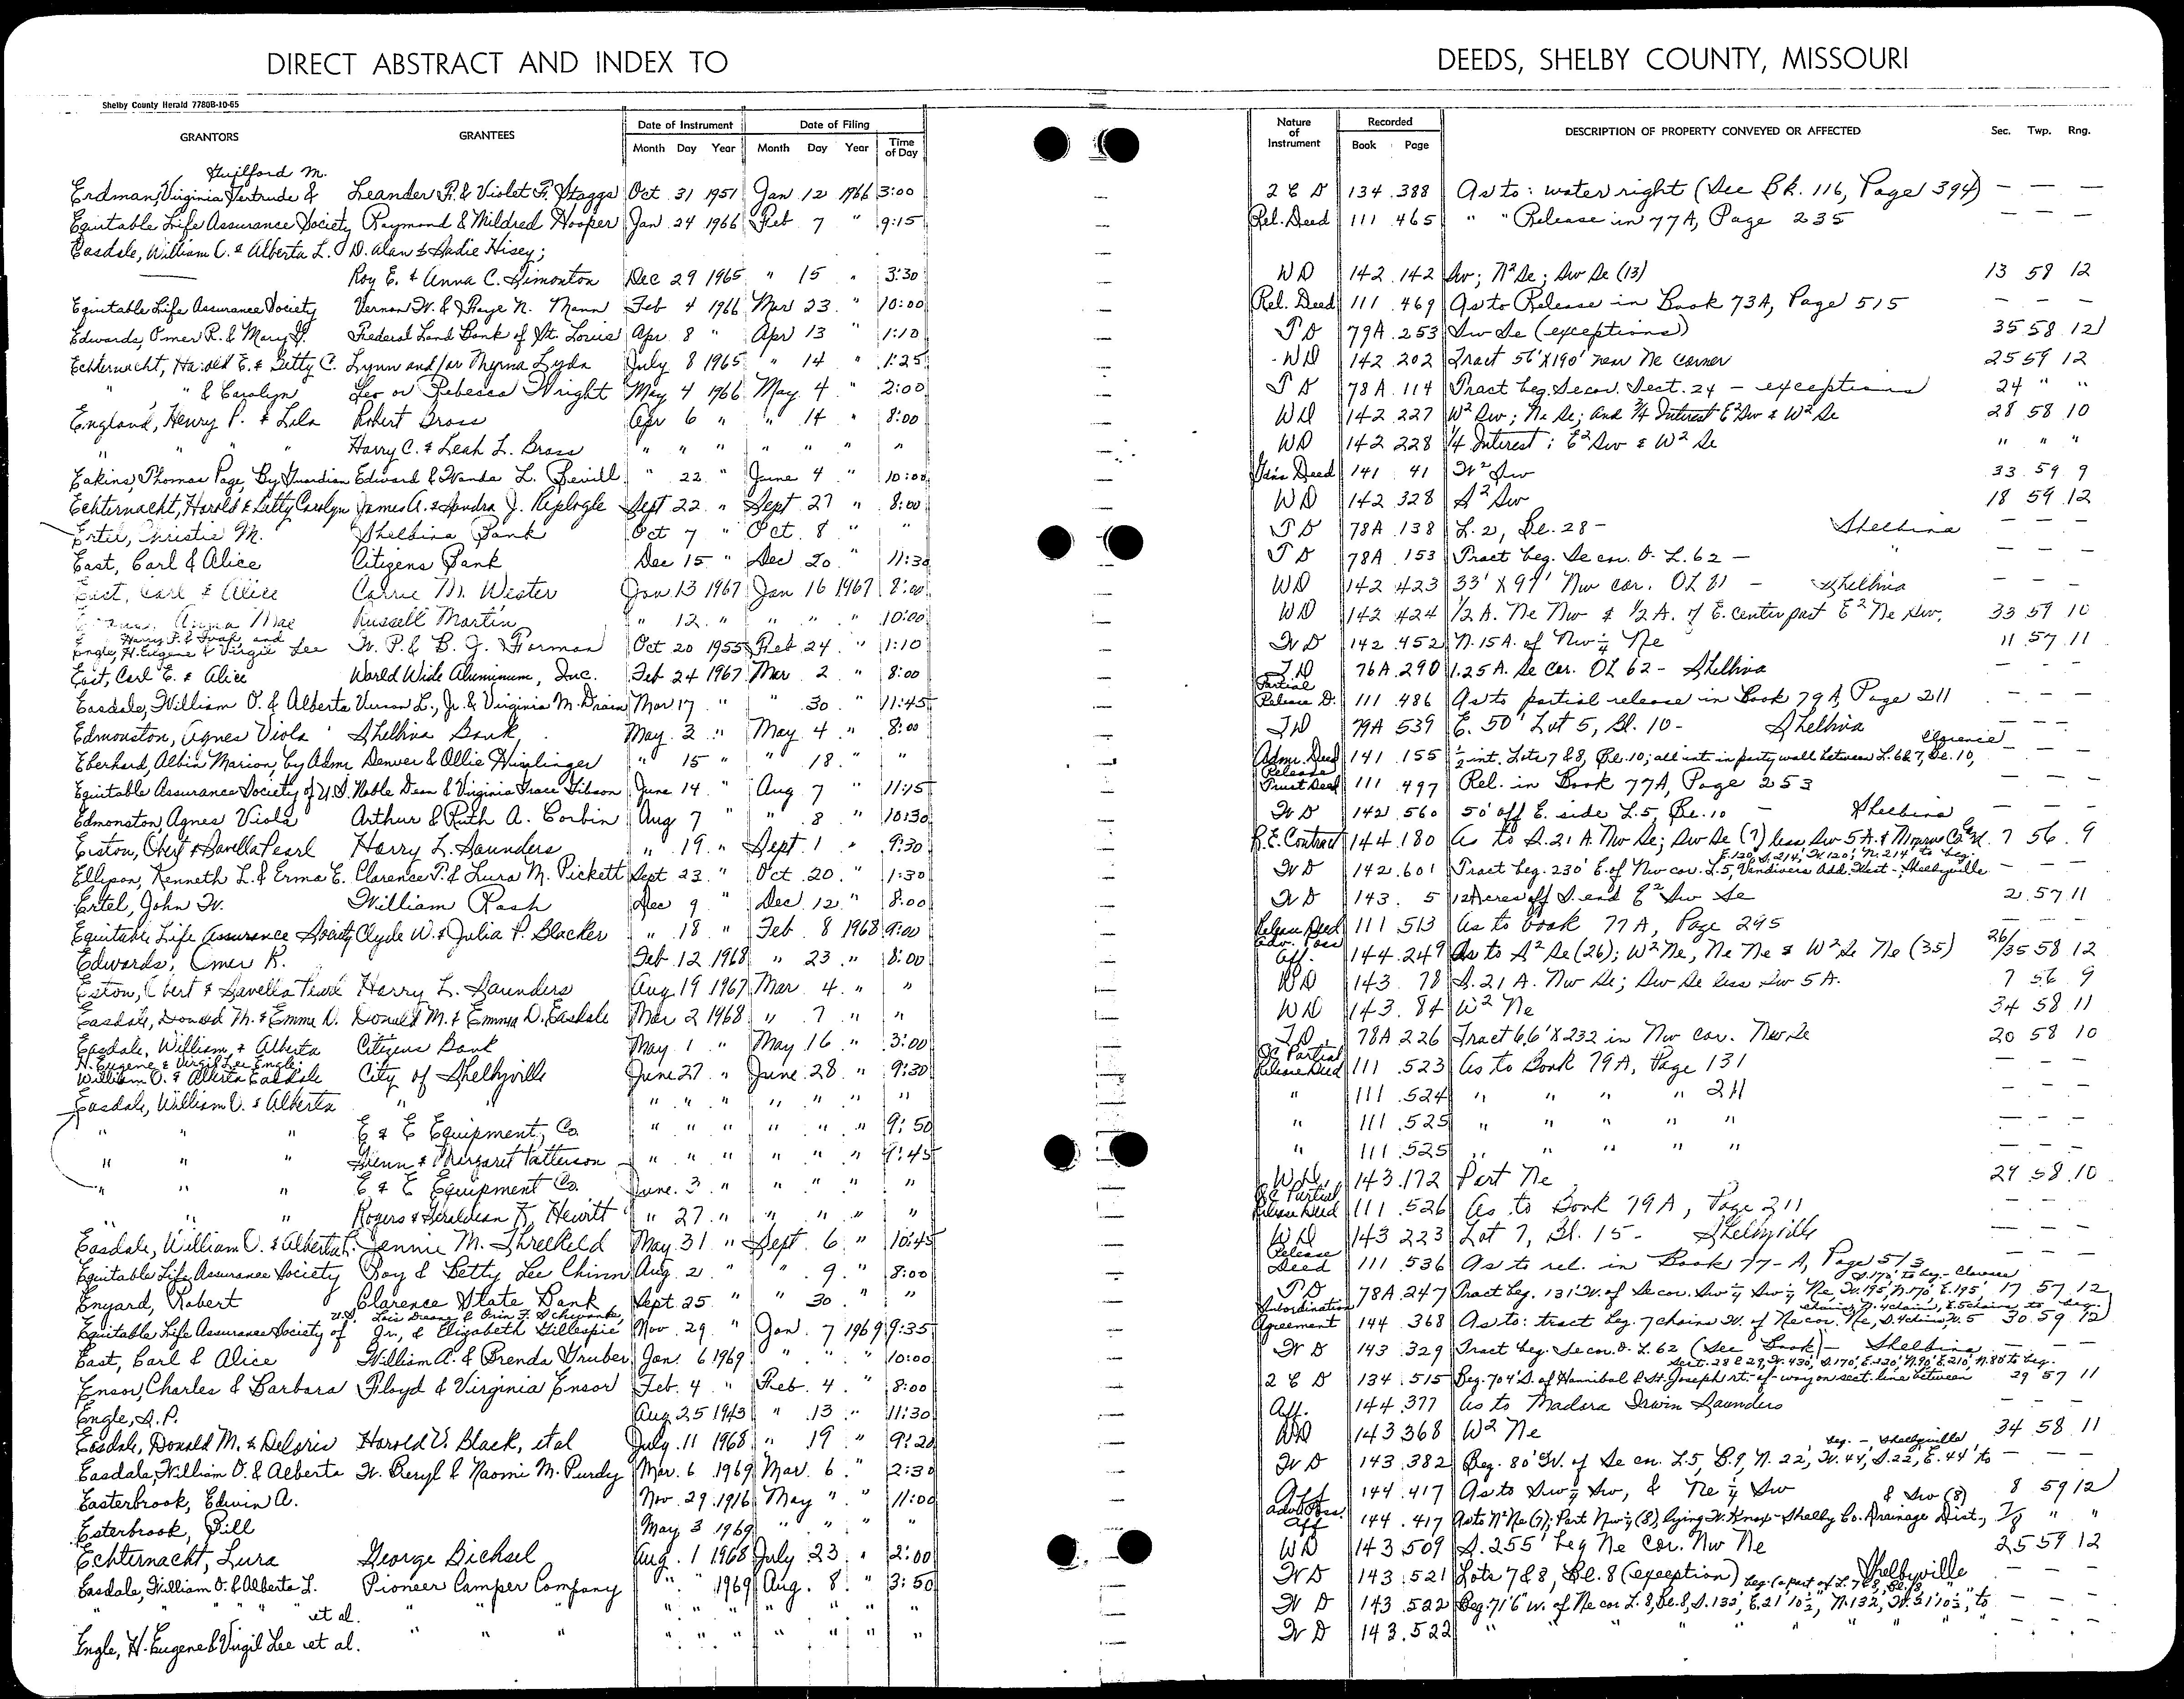 DIRECT ABSTRACT AND INDEX TO
Shelby County Herald 7780B-10-65
GRANTORS GRANTEES Date of Instrument Month Day Year Date of Filing Month Day Year Time of Day
Guilford M.
Erdman, Virginia Gertrude & Leander F. & Violet F. Staggs Oct 31 1951 Jan 12 1966 3:00
Equitable Life Assurance Society Raymond & Mildred Hooper Jan 24 1966 Feb 7 " 9:15
Easdale, William O. & Alberta L. D. Alan & Sadie Hisey;
Roy E. & Anna C. Simonton Dec 29 1965 " 15 " 3:30
Equitable Life Assurance Society Vernon W. & Faye N. Mann Feb 4 1966 Mar 23 " 10:00
Edwards, Omer R. & Mary J. Federal Land Bank of St. Louis Apr 8 " Apr 13 " 1:10
Echternacht, Harold E. & Letty C. Lynn and/or Thyrma Lyda July 8 1965 " 14 " 1:25
" " & Carolyn Leo or Rebecca Wright May 4 1966 May 4 " 2:00
England, Henry P. & Lela Robert Bross Apr 6 " " 14 " 8:00
" " Harry C. & Leah L. Bross " " " " " " "
Eakins, Thomas Page, By Guardian Edward & Wanda L. Revill " 22 " June 4 " 10:00
Echternacht, Harold & Letty Carolyn James A. & Sandra J. Replogle Sept 22 " Sept 27 " 8:00
Ertel, Christie M. Shelbina Bank Oct 7 " Oct 8 " "
East, Carl & Alice Citizens Bank Dec 15 " Dec 20 " 11:30
East, Carl & Alice Carrie M. Wester Jan 13 1967 Jan 16 1967 8:00
Anna Mae Russell Martin " 12 " " " " 10:00
Harry F. & Fwan and
Engle, H. Eugene & Virgie Lee W. P. & B. J. Forman Oct 20 1955 Feb 24 " 1:10
East, Carl E. & Alice World Wide Aluminum, Inc. Feb 24 1967 Mar 2 " 8:00
Easdale, William O. & Alberta Vernon L., Jr. & Virginia M. Drain Mar 17 " " 30 " 11:45
Edmonston, Agnes Viola Shelbina Bank May 2 " May 4 " 8:00
Eberhard, Albin Marion, by Admr Denver & Ollie Himlinger " 15 " " 18 " "
Equitable Assurance Society of U.S. Noble Dean & Virginia Grace Gibson June 14 " Aug 7 " 11:15
Edmonston, Agnes Viola Arthur & Ruth A. Corbin Aug 7 " " 8 " 10:30
Eiston, Obert & Savella Pearl Harry L. Saunders " 19 " Sept 1 " 9:30
Ellison, Kenneth L. & Erma E. Clarence P. & Lura M. Pickett Sept 23 " Oct 20 " 1:30
Ertel, John W. William Rash Dec 9 " Dec 12 " 8:00
Equitable Life Assurance Society Clyde W. & Julia P. Blacker " 18 " Feb 8 1968 9:00
Edwards, Omer R. Feb 12 1968 " 23 " 8:00
Eston, Obert & Savella Pearl Harry L. Saunders Aug 19 1967 Mar 4 " "
Easdale, Donald M. & Emma D. Donald M. & Emma D. Easdale Mar 2 1968 " 7 " "
Easdale, William & Alberta Citizens Bank May 1 " May 16 " 3:00
H. Eugene & Virgil Lee Engle;
William O. & Alberta Easdale City of Shelbyville June 27 " June 28 " 9:30
Easdale, William O. & Alberta " " " " " " " " "
" " " E & E Equipment, Co. " " " " " " 9:50
" " " Glenn & Margaret Patterson " " " " " " 9:45
" " " E & E Equipment Co. June 3 " " " " "
" " " Rogers & Geraldean F. Hewitt " 27 " " " " "
Easdale, William O. & Alberta L. Jennie M. Threlkeld May 31 " Sept 6 " 10:45
Equitable Life Assurance Society Roy & Betty Lee Chinn Aug 2 " " 9 " 8:00
Enyard, Robert Clarence State Bank Sept 25 " " 30 " "
U.S. Lois Deane & Orin F. Schwanke,
Equitable Life Assurance Society of Jr., & Elizabeth Gillespie Nov. 29 " Jan. 7 1969 9:35
East, Carl & Alice William A. & Brenda Gruber Jan. 6 1969 " " " 10:00
Ensor, Charles & Barbara Floyd & Virginia Ensor Feb. 4 " Feb. 4 " 8:00
Engle, S. P. Aug 25 1943 " 13 " 11:30
Easdale, Donald M. & Deloris Harold V. Black, et al July 11 1968 " 19 " 9:20
Easdale, William O. & Alberta W. Beryl & Naomi M. Purdy Mar. 6 1969 Mar. 6 " 2:30
Easterbrook, Edwin A. Nov. 29 1916 May " " 11:00
Esterbrook, Bill May 3 1969 " " " "
Echternacht, Lura George Bichsel Aug. 1 1968 July 23 " 2:00
Easdale, William O. & Alberta L. Pioneer Camper Company " " 1969 Aug. 8 " 3:50
" " " " et al. " " " " " " " " " "
Engle, H. Eugene & Virgil Lee et al. " " " " " " " " " "
DEEDS, SHELBY COUNTY, MISSOURI
Nature of Instrument Recorded Book Page DESCRIPTION OF PROPERTY CONVEYED OR AFFECTED Sec. Twp. Rng.
2 C D 134 388 As to: water right (See Bk. 116, Page 394) — — —
Rel. Deed 111 465 " " Release in 77A, Page 235 — — —
WD 142 142 Sw; N² Se; Sw Se (13) 13 58 12
Rel. Deed 111 469 As to Release in Book 73A, Page 515 — — —
TD 79A 253 Sw Se (exceptions) 35 58 12
WD 142 202 Tract 56' X 190' near Ne corner 25 59 12
TD 78A 114 Tract beg. Se cor. Sect. 24 - exceptions 24 " "
WD 142 227 W² Sw; Ne Se; and ¾ Interest E² Sw & W² Se 28 58 10
WD 142 228 ¼ Interest: E² Sw & W² Se " " "
Gdn's Deed 141 41 W² Sw 33 59 9
WD 142 328 S² Sw 18 59 12
TD 78A 138 L. 2, Bl. 28 - Shelbina — — —
TD 78A 153 Tract beg. Se cor. O. L. 62 - " — — —
WD 142 423 33' X 97' Nw cor. OL 81 - Shelbina — — —
WD 142 424 1/2 A. Ne Nw & 1/2 A. of E. center part E² Ne Sw. 33 59 10
WD 142 452 N. 15 A. of Nw ¼ Ne 11 57 11
TD 76A 290 1.25 A. Se cor. OL 62 - Shelbina
Partial Release D. 111 486 As to partial release in Book 79A, Page 211 — — —
TD 79A 539 E. 50' Lot 5, Bl. 10 - Shelbina — — —
Admr. Deed 141 155 ½ int. Lots 7 & 8, Bl. 10; all int. in party wall between L. 6 & 7, Bl. 10, Clarence — — —
Release Trust Deed 111 497 Rel. in Book 77A, Page 253 — — —
WD 142 560 50' off E. side L. 5, Bl. 10 - Shelbina — — —
R.E. Contract 144 180 As to S. 21 A. Nw Se; Sw Se (7) less Sw 5 A. & 7 56 9
E. 120', S. 214', W. 120', N. 214' to beg.
WD 142 601 Tract beg. 230' E. of Nw cor. L. 5, Vandivers Add. West - Shelbyville — — —
WD 143 5 12 Acres off S. end E² Sw Se 2 57 11
Release Deed 111 513 As to Book 77A, Page 295 — — —
Adv. Poss. Aff. 144 249 As to S² Se (26); W² Ne, Ne Ne & W² Se Ne (35) 26/35 58 12
WD 143 78 S. 21 A. Nw Se; Sw Se less Sw 5 A. 7 56 9
WD 143 84 W² Ne 34 58 11
TD 78A 226 Tract 66' X 232 in Nw cor. Nw Se 20 58 10
QC Partial Release Deed 111 523 As to Book 79A, Page 131 — — —
" 111 524 " " " " 211 — — —
" 111 525 " " " " " — — —
" 111 525 " " " " " — — —
WD 143 172 Part Ne 29 58 10
QC Partial Release Deed 111 526 As to Book 79A, Page 211 — — —
WD 143 223 Lot 7, Bl. 15 - Shelbyville — — —
Release Deed 111 536 As to rel. in Book 77-A, Page 573 — — —
S. 170', to beg. - Clarence
TD 78A 247 Tract beg. 131' W. of Se cor. Sw ¼ Sw ¼ Ne, W. 195', N. 170', E. 195', 17 57 12
chains, N. 4 chains, E. 5 chains to beg.
Subordination Agreement 144 368 As to: tract beg. 7 chains W. of Ne cor. Ne, S. 4 chains, W. 5 30 59 12
WD 143 329 Tract beg. Se cor. O. L. 62 (See Book) - Shelbina — — —
Sect. 28 & 29, W. 430', S. 170', E. 120', N. 90', E. 210', N. 80' to beg.
2 C D 134 515 Beg. 704' S. of Hannibal & St. Joseph rt.-of-way on sect. line between 29 57 11
Aff. 144 377 As to Madara Irwin Saunders
WD 143 368 W² Ne 34 58 11
beg. - Shelbyville
WD 143 382 Beg. 80' W. of Se cor. L. 5, B. 9, N. 22', W. 44', S. 22', E. 44' to — — —
Aff. 144 417 As to Sw ¼ Sw, & Ne ¼ Sw 8 59 12
& Sw (8)
Adv. Poss. Aff 144 417 As to N² Ne (7); Part Nw ¼ (8), lying W. Knox-Shelby Co. Drainage Dist., 7/8 " "
WD 143 509 S. 255' beg Ne Cor. Nw Ne 25 59 12
WD 143 521 Lots 7 & 8, Bl. 8 (exception) Shelbyville — — —
beg. (a part of L. 7 & 8, Bl. 8, "
WD 143 522 Beg. 71'6" W. of Ne cor L. 8, Bl. 8, S. 132', E. 21' 10½", N. 132, W. 21' 10½", to — — —
WD 143 522 " " " " " " " — — —